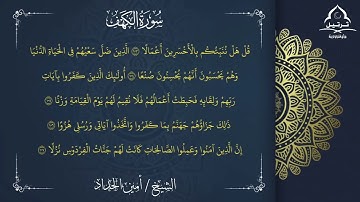 سورة الكهف
قُلْ هَلْ نُنَبِّئُكُم بِالْأَخْسَرِينَ أَعْمَالًا ۝ الَّذِينَ ضَلَّ سَعْيُهُمْ فِي الْحَيَاةِ الدُّنْيَا
وَهُمْ يَحْسَبُونَ أَنَّهُمْ يُحْسِنُونَ صُنْعًا ۝ أُولَٰئِكَ الَّذِينَ كَفَرُوا بِآيَاتِ
رَبِّهِمْ وَلِقَائِهِ فَحَبِطَتْ أَعْمَالُهُمْ فَلَا نُقِيمُ لَهُمْ يَوْمَ الْقِيَامَةِ وَزْنًا ۝
ذَٰلِكَ جَزَاؤُهُمْ جَهَنَّمُ بِمَا كَفَرُوا وَاتَّخَذُوا آيَاتِي وَرُسُلِي هُزُوًا ۝
إِنَّ الَّذِينَ آمَنُوا وَعَمِلُوا الصَّالِحَاتِ كَانَتْ لَهُمْ جَنَّاتُ الْفِرْدَوْسِ نُزُلًا ۝
الشيخ / أمين الحداد